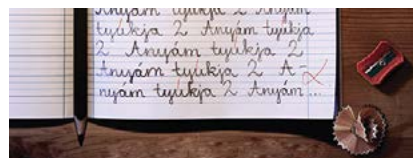 Anyám tyúkja 2 Anyám
tyúkja 2 Anyám tyúkja
2 Anyám tyúkja 2
Anyám tyúkja 2 A-
nyám tyúkja 2 Anyám ...